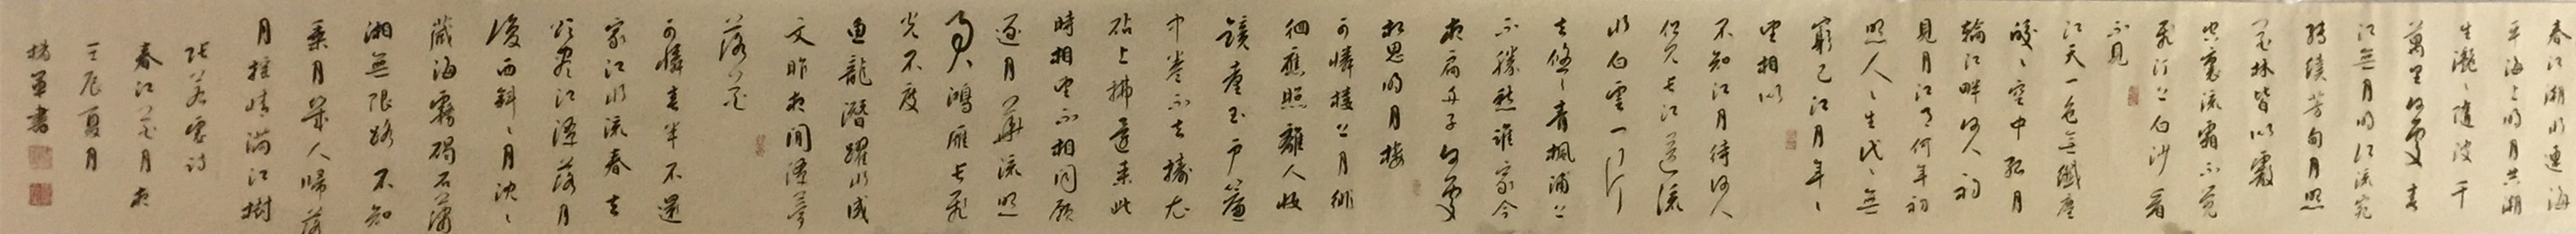 春江潮水連海
平海上明月共潮
生灩灩隨波千
萬里何處春
江無月明江流宛
轉繞芳甸月照
花林皆似霰
空裏流霜不覺
飛汀上白沙看
不見
江天一色無纖塵
皎皎空中孤月
輪江畔何人初
見月江月何年初
照人人生代代無
窮已江月年年
望相似
不知江月待何人
但見長江送流
水白雲一片
去悠悠青楓浦上
不勝愁誰家今
夜扁舟子何處
相思明月樓
可憐樓上月徘
徊應照離人妝
鏡臺玉戶簾
中卷不去擣衣
砧上拂還來此
時相望不相聞願
逐月華流照
君鴻雁長飛
光不度
魚龍潛躍水成
文昨夜閒潭夢
落花
可憐春半不還
家江水流春去
欲盡江潭落月
復西斜斜月沈沈
藏海霧碣石瀟
湘無限路不知
乘月幾人歸落
月搖情滿江樹
張若虛詩
春江花月夜
壬辰夏月
楊軍書